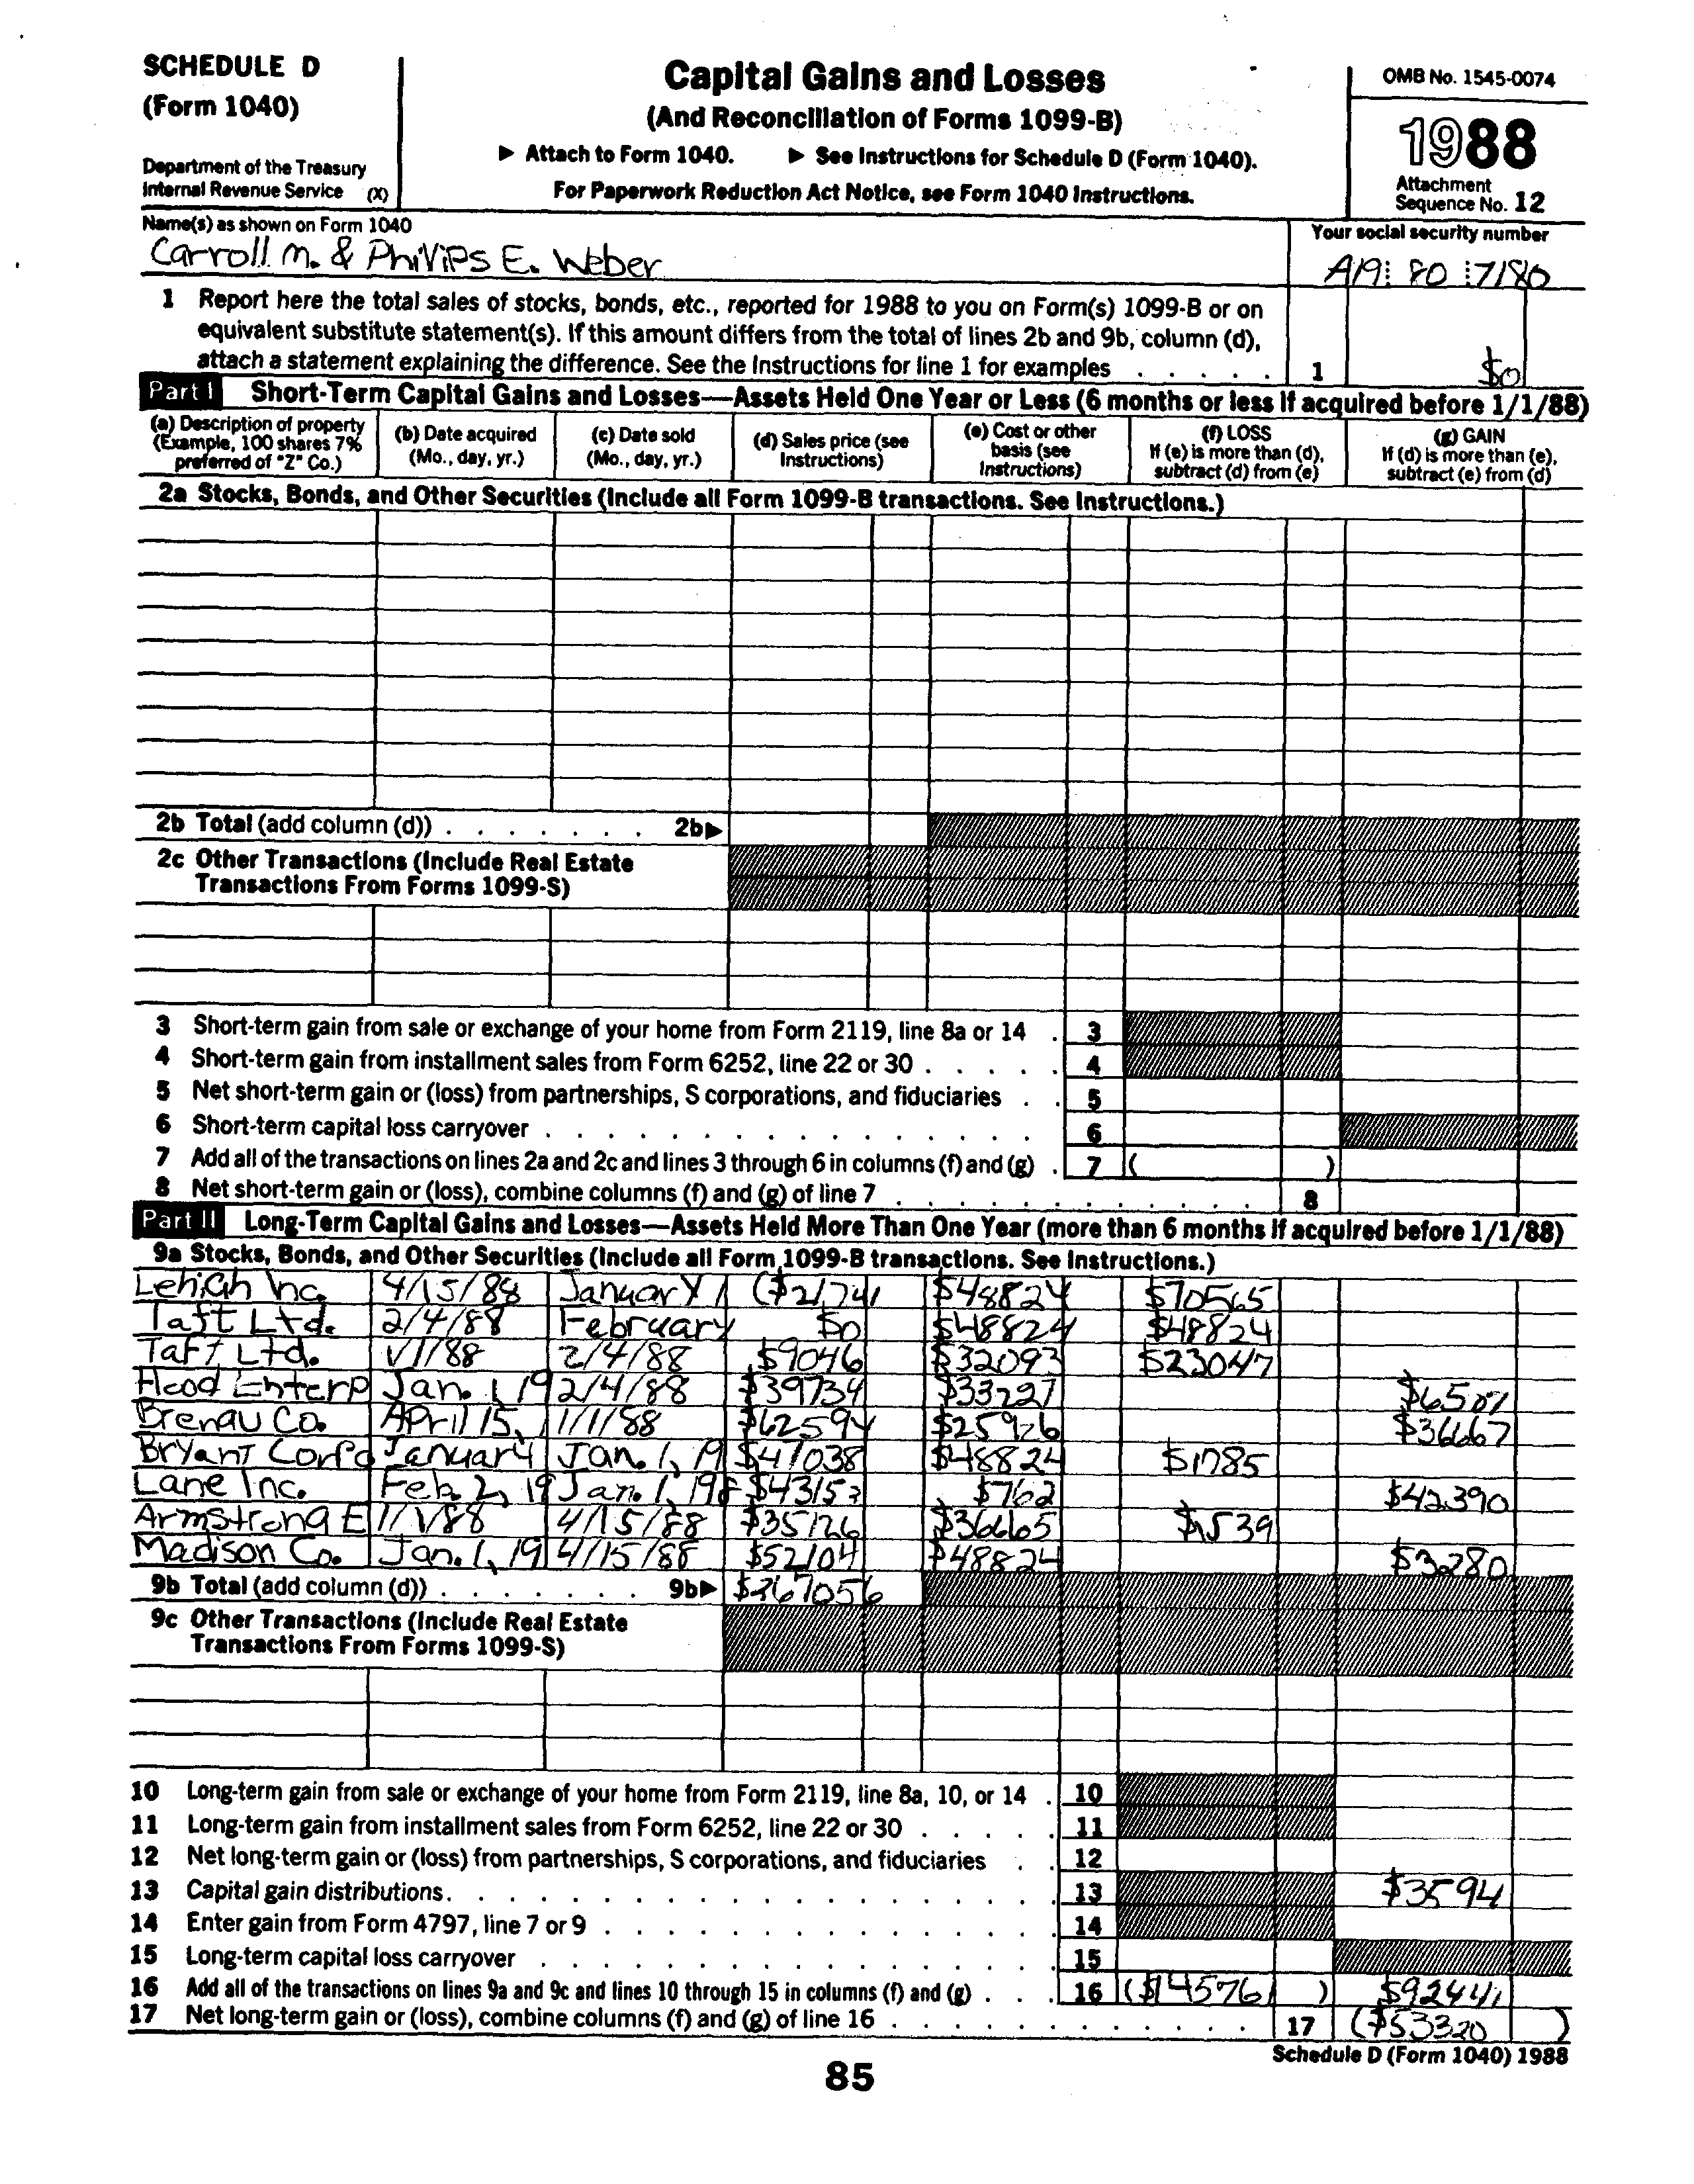 SCHEDULE D
(Form 1040)
Department of the Treasury
Internal Revenue Service (X)
Capital Gains and Losses
(And Reconciliation of Forms 1099-B)
▶ Attach to Form 1040. ▶ See Instructions for Schedule D (Form 1040).
For Paperwork Reduction Act Notice, see Form 1040 Instructions.
OMB No. 1545-0074
1988
Attachment
Sequence No. 12
Name(s) as shown on Form 1040
Carroll M. & Phillips E. Weber
Your social security number
A19 80 7180
1 Report here the total sales of stocks, bonds, etc., reported for 1988 to you on Form(s) 1099-B or on
equivalent substitute statement(s). If this amount differs from the total of lines 2b and 9b, column (d),
attach a statement explaining the difference. See the Instructions for line 1 for examples . . . . . 1 $0
Part I Short-Term Capital Gains and Losses—Assets Held One Year or Less (6 months or less if acquired before 1/1/88)
(a) Description of property
(Example, 100 shares 7%
preferred of "Z" Co.)
(b) Date acquired
(Mo., day, yr.)
(c) Date sold
(Mo., day, yr.)
(d) Sales price (see
Instructions)
(e) Cost or other
basis (see
Instructions)
(f) LOSS
If (e) is more than (d),
subtract (d) from (e)
(g) GAIN
If (d) is more than (e),
subtract (e) from (d)
2a Stocks, Bonds, and Other Securities (Include all Form 1099-B transactions. See Instructions.)
2b Total (add column (d)) . . . . . . . 2b▶
2c Other Transactions (Include Real Estate
Transactions From Forms 1099-S)
3 Short-term gain from sale or exchange of your home from Form 2119, line 8a or 14 . 3
4 Short-term gain from installment sales from Form 6252, line 22 or 30 . . . . . 4
5 Net short-term gain or (loss) from partnerships, S corporations, and fiduciaries . . 5
6 Short-term capital loss carryover . . . . . . . . . . . . . . . . 6
7 Add all of the transactions on lines 2a and 2c and lines 3 through 6 in columns (f) and (g) . 7 ( )
8 Net short-term gain or (loss), combine columns (f) and (g) of line 7 . . . . . . . . . . . . 8
Part II Long-Term Capital Gains and Losses—Assets Held More Than One Year (more than 6 months if acquired before 1/1/88)
9a Stocks, Bonds, and Other Securities (Include all Form 1099-B transactions. See Instructions.)
Lehigh Inc. 4/15/88 January 1 ($21,741 $48824 $70565
Taft Ltd. 2/4/88 February $0 $48824 $48824
Taft Ltd. 1/1/88 2/4/88 $9046 $32093 $23047
Hood Enterp Jan. 1, 19 2/4/88 $39734 $33227 $6507
Brenau Co. April 15, 1/1/88 $62594 $25926 $36667
Bryant Corpo January Jan. 1, 19 $47038 $48824 $1785
Lane Inc. Feb. 2, 19 Jan. 1, 198 $43153 $762 $42390
Armstrong E 1/1/88 4/15/88 $35126 $36665 $1539
Madison Co. Jan. 1, 19 4/15/88 $52104 $48824 $3280
9b Total (add column (d)) . . . . . . . 9b▶ $267056
9c Other Transactions (Include Real Estate
Transactions From Forms 1099-S)
10 Long-term gain from sale or exchange of your home from Form 2119, line 8a, 10, or 14 . 10
11 Long-term gain from installment sales from Form 6252, line 22 or 30 . . . . . 11
12 Net long-term gain or (loss) from partnerships, S corporations, and fiduciaries . . 12
13 Capital gain distributions . . . . . . . . . . . . . . . . . . . 13 $3594
14 Enter gain from Form 4797, line 7 or 9 . . . . . . . . . . . . . . 14
15 Long-term capital loss carryover . . . . . . . . . . . . . . . . 15
16 Add all of the transactions on lines 9a and 9c and lines 10 through 15 in columns (f) and (g) . . . 16 ($145761 ) $92441
17 Net long-term gain or (loss), combine columns (f) and (g) of line 16 . . . . . . . . . . . . 17 ($53320 )
Schedule D (Form 1040) 1988
85